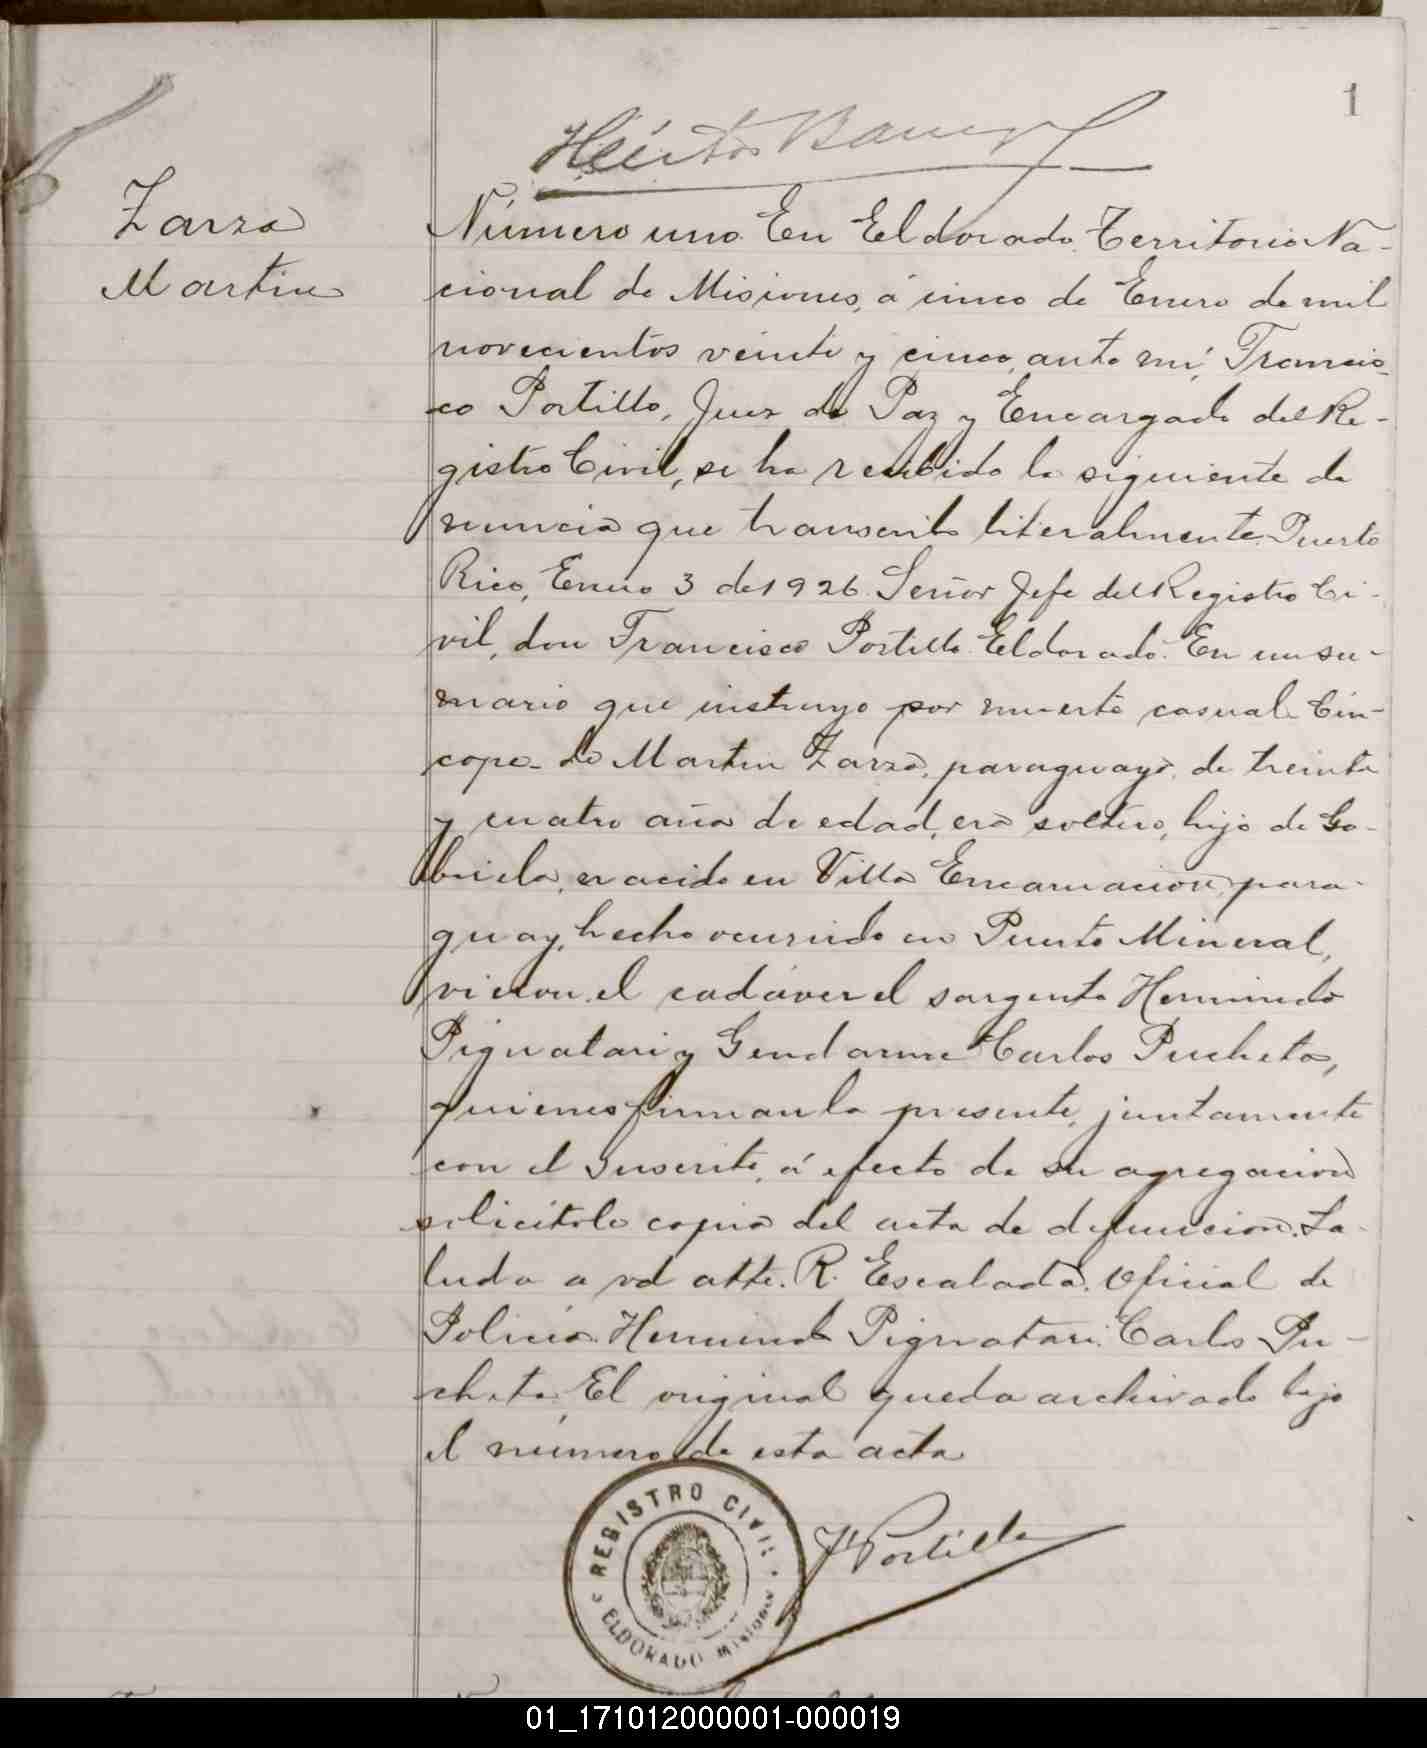 1
Héctor
Zarza
Martin
Número uno. En Eldorado, Territorio Na-
cional de Misiones, á cinco de Enero de mil
novecientos veinte y cinco, ante mí, Francis-
co Portillo, Juez de Paz y Encargado del Re-
gistro Civil, se ha recibido la siguiente de
nuncia que transcribo literalmente. Puerto
Rico, Enero 3 de 1926. Señor Jefe del Registro Ci-
vil, don Francisco Portillo. Eldorado. En un su-
mario que instruyo por muerte casual. Cin-
cope de Martin Zarza, paraguayo, de treinta
y cuatro año de edad, era soltero, hijo de Ga-
briela, nacido en Villa Encarnacion, para-
guay, hecho ocurrido en Puerto Mineral,
vieron el cadáver el sargento Hermindo
Pignatari y Gendarme Carlos Pucheta,
quienes firman la presente, juntamente
con el suscrito, á efecto de su agregacion
solicítole copia del acta de defuncion. Sa-
luda a vd atte. R. Escalada. Oficial de
Policia. Hermindo Pignatari. Carlos Pu-
cheta. El original queda archivado bajo
el número de esta acta
F Portillo
REGISTRO CIVIL
ELDORADO Misiones
01_171012000001-000019